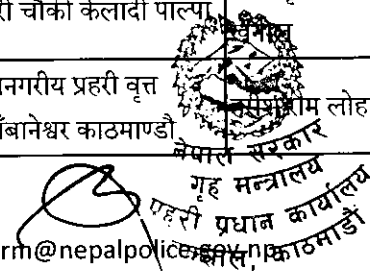 री चौकी केलादी पाल्पा
नगरीय प्रहरी वृत्त
बानेश्वर काठमाण्डौ
राम लोह
नेपाल सरकार
गृह मन्त्रालय
प्रहरी प्रधान कार्यालय
काठमाडौं
rm@nepalpolice.gov.np